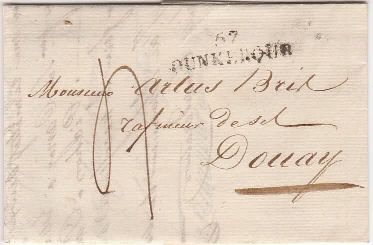 57
DUNKERQUE
Monsieur Artus Bril
rafineur de sel
Douay